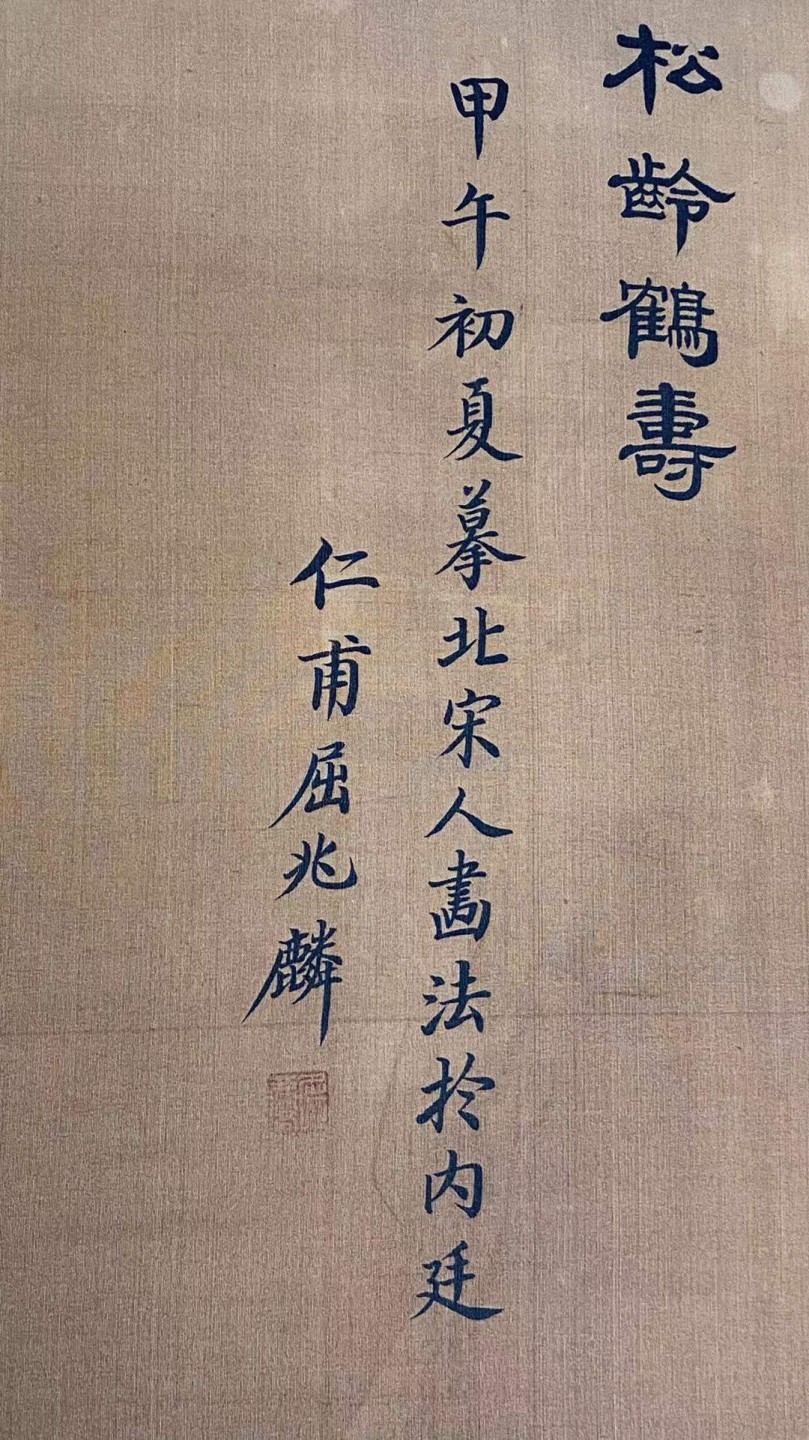 松齡鶴壽
甲午初夏摹北宋人畫法於内廷
仁甫屈兆麟